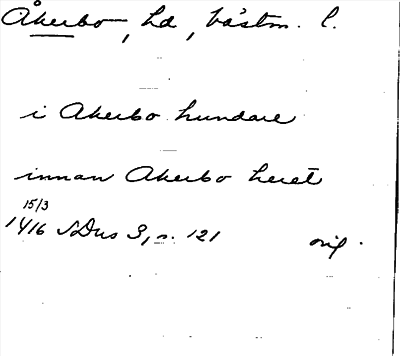 Åkerbo, hd, Västm. l.
i Akerbo hundare
innan Akerbo heret
15/3
1416 SDns 3, s. 121 orig.